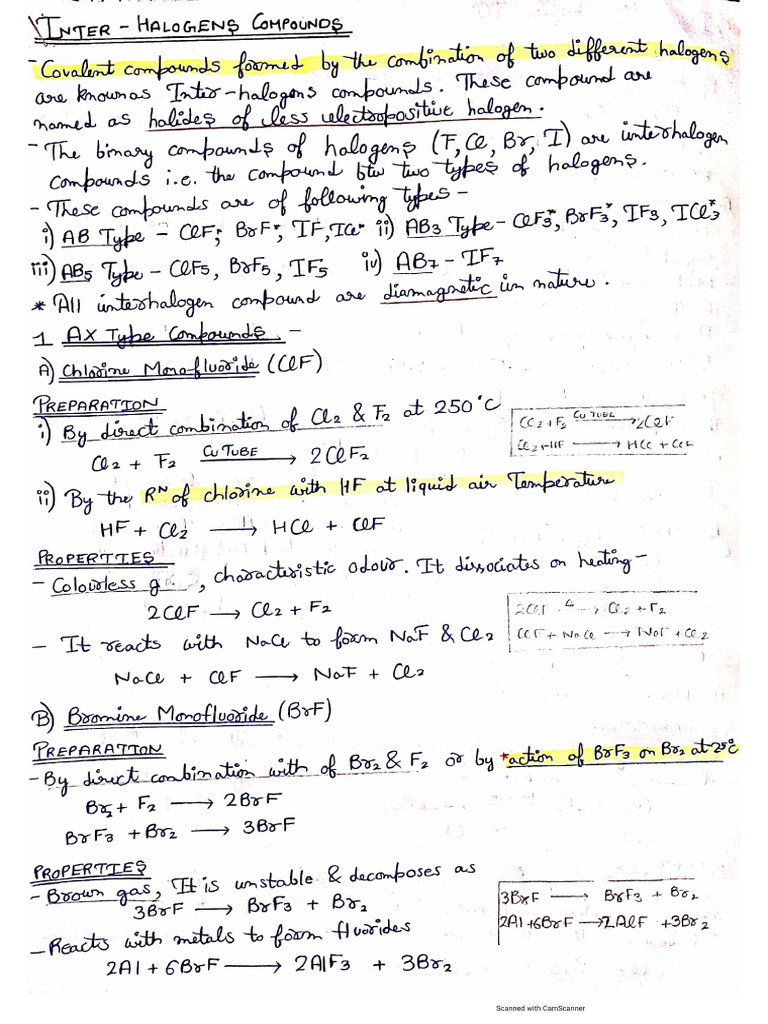 INTER - HALOGENS COMPOUNDS
- Covalent compounds formed by the combination of two different halogens
are known as Inter-halogens compounds. These compound are
named as halides of less electropositive halogen.
- The binary compounds of halogens (F, Cl, Br, I) are interhalogen
compounds i.e. the compound btw two types of halogens.
- These compounds are of following types -
i) AB Type - ClF*, BrF*, IF, ICl* ii) AB3 Type - ClF3*, BrF3*, IF3, ICl3*
iii) AB5 Type - ClF5, BrF5, IF5 iv) AB7 - IF7
* All interhalogen compound are diamagnetic in nature.
1 AX Type Compounds -
A) Chlorine Monofluoride (ClF)
PREPARATION
i) By direct combination of Cl2 & F2 at 250°C
Cl2 + F2 CU TUBE ⟶ 2ClF2
Cl2 + F2 CU TUBE ⟶ 2ClF
Cl2 + HF ⟶ HCl + ClF
ii) By the RN of chlorine with HF at liquid air Temperature
HF + Cl2 ⟶ HCl + ClF
PROPERTIES
- Colourless g , characteristic odour. It dissociates on heating -
2ClF ⟶ Cl2 + F2
2ClF Δ ⟶ Cl2 + F2
ClF + NaCl ⟶ NaF + Cl2
- It reacts with NaCl to form NaF & Cl2
NaCl + ClF ⟶ NaF + Cl2
B) Bromine Monofluoride (BrF)
PREPARATION
- By direct combination with of Br2 & F2 or by *action of BrF3 on Br2 at 25°C
Br2 + F2 ⟶ 2BrF
BrF3 + Br2 ⟶ 3BrF
PROPERTIES
- Brown gas, It is unstable & decomposes as
3BrF ⟶ BrF3 + Br2
3BrF ⟶ BrF3 + Br2
2Al + 6BrF ⟶ 2AlF + 3Br2
- Reacts with metals to form fluorides
2Al + 6BrF ⟶ 2AlF3 + 3Br2
Scanned with CamScanner